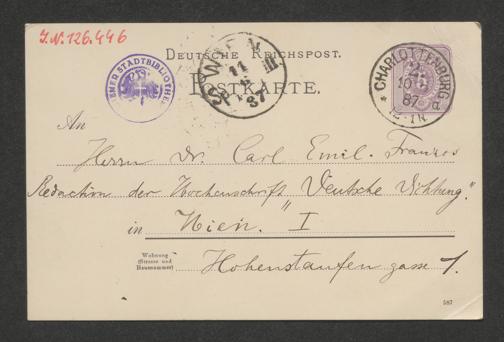 J.N. 126.446
DEUTSCHE REICHSPOST.
POSTKARTE.
WIENER STADTBIBLIOTHEK
WIEN
11
87
CHARLOTTENBURG
2
10
87
12-1N.
An
Herrn Dr. Carl Emil Franzos
Redaction der Wochenschrift „Deutsche Dichtung“
in Wien. I
Wohnung
(Strasse und
Hausnummer)
Hohenstaufengasse 1.
587